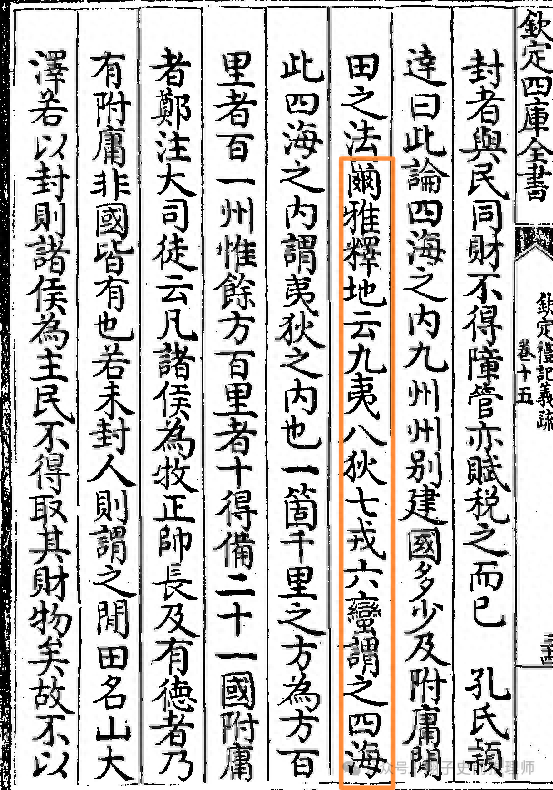 欽定四庫全書
欽定禮記義疏
卷十五
封者與民同財不得障管亦賦税之而已 孔氏穎
達曰此論四海之内九州州别建國多少及附庸閒
田之法爾雅釋地云九夷八狄七戎六蠻謂之四海
此四海之内謂夷狄之内也一箇千里之方為方百
里者百一州惟餘方百里者十得備二十一國附庸
者鄭注大司徒云凡諸侯為牧正帥長及有德者乃
有附庸非國皆有也若未封人則謂之閒田名山大
澤若以封則諸侯為主民不得取其財物矣故不以